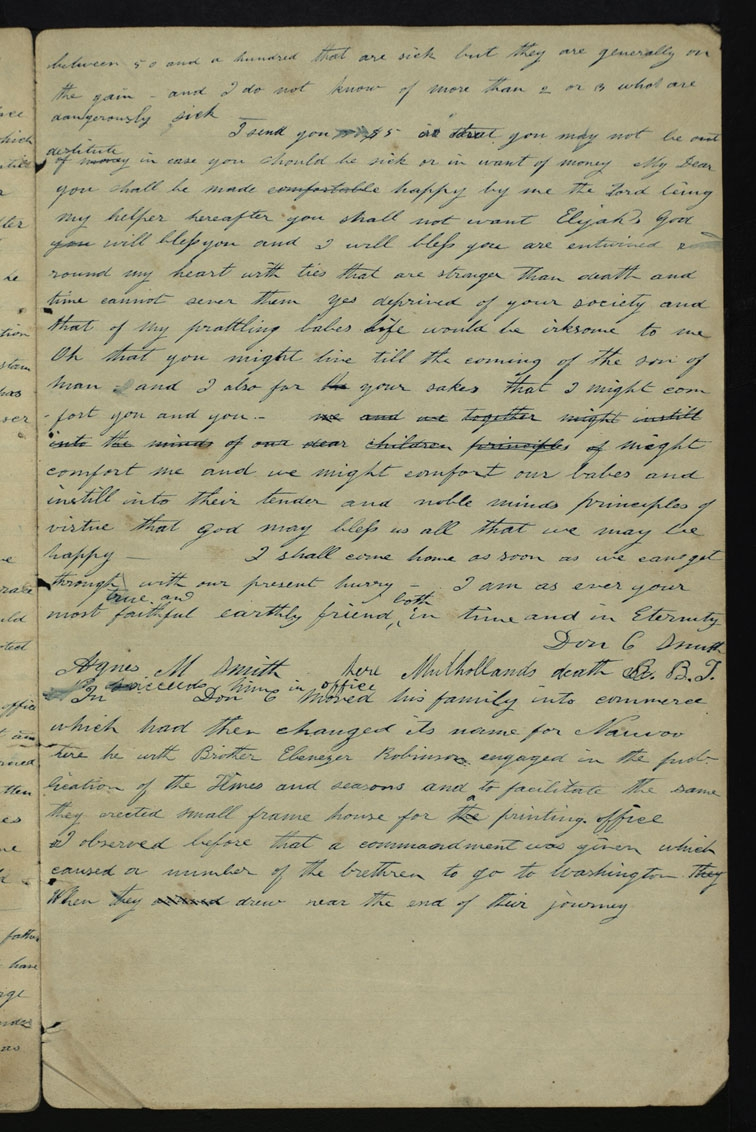 between 50 and a hundred that are sick but they are generally on
the gain - and I do not know of more than 2 or 3 who are
dangerously sick
I send you $5 so that you may not be out
destitute
of money in case you should be sick or in want of money My Dear
you shall be made comfortable happy by me the Lord being
my helper hereafter you shall not want Elijah's God
you will bless you and I will bless you are entwined
round my heart with ties that are stronger than death and
time cannot sever them yes deprived of your society and
that of my prattling babes life would be irksome to me
Oh that you might live till the coming of the son of
man - and I also for your sakes that I might com
-fort you and you - me and we together might instill
into the minds of our dear children principles of might
comfort me and we might comfort our babes and
instill into their tender and noble minds principles of
virtue that God may bless us all that we may be
happy — I shall come home as soon as we can get
through with our present hurry - I am as ever your
true and both
most faithful earthly friend, in time and in Eternity
Don C Smith
Agnes M Smith here Mulhollands death R. B. T.
succeeds him in office
In Don C Moved his family into commerce
which had then changed its name for Nauvoo
here he with Brother Ebenezer Robinson engaged in the pub-
lication of the Times and seasons and to facilitate the same
they erected small frame house for the a printing office
I observed before that a commandment was given which
caused a number of the brethren to go to Washington they
When they drew near the end of their journey